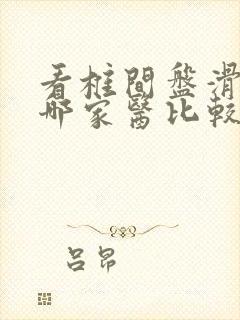 看柱間盤滑
哪家醫比較
呂昂